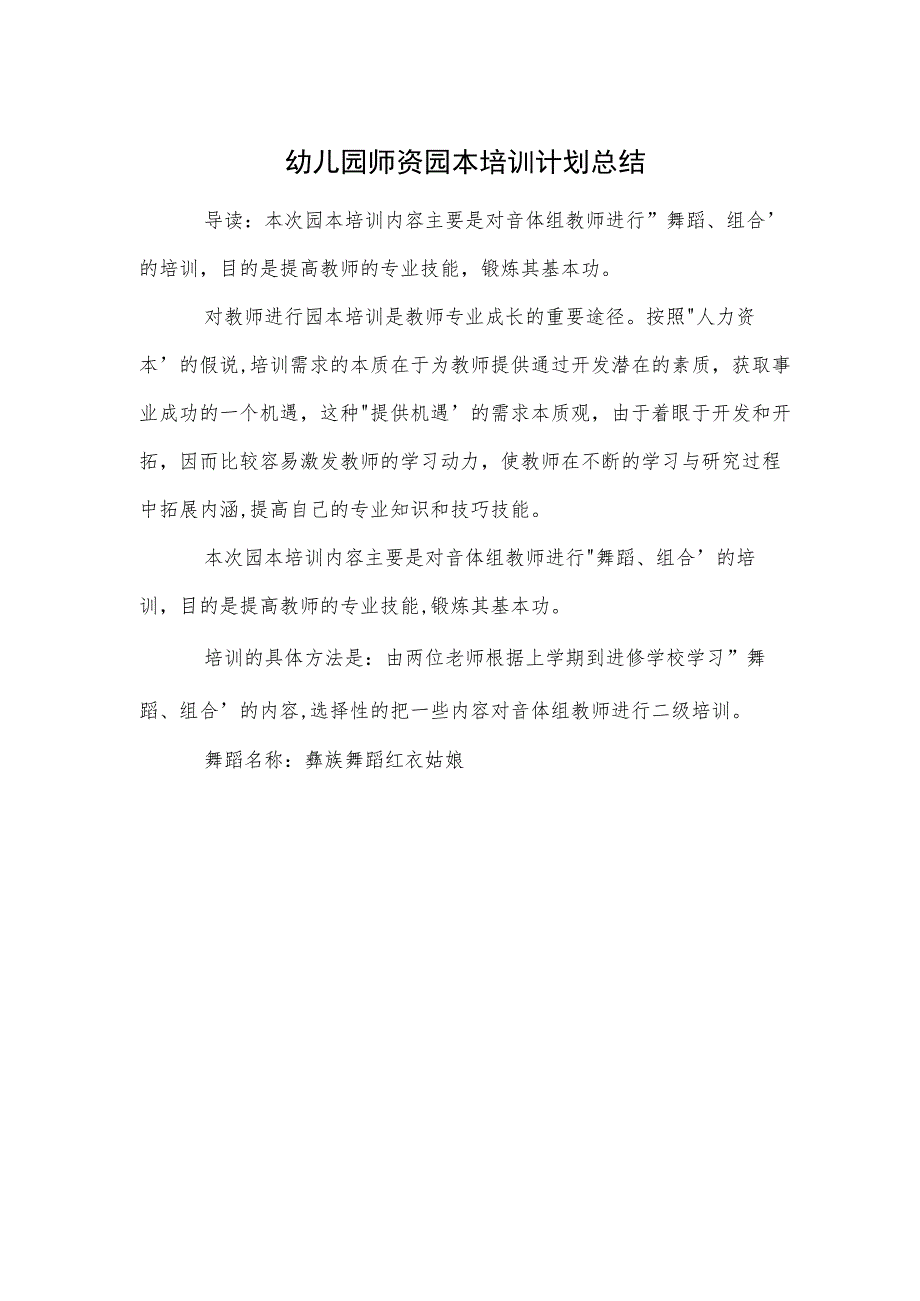 幼儿园师资园本培训计划总结
导读：本次园本培训内容主要是对音体组教师进行”舞蹈、组合’
的培训，目的是提高教师的专业技能，锻炼其基本功。
对教师进行园本培训是教师专业成长的重要途径。按照"人力资
本’的假说,培训需求的本质在于为教师提供通过开发潜在的素质，获取事
业成功的一个机遇，这种"提供机遇’的需求本质观，由于着眼于开发和开
拓，因而比较容易激发教师的学习动力，使教师在不断的学习与研究过程
中拓展内涵,提高自己的专业知识和技巧技能。
本次园本培训内容主要是对音体组教师进行"舞蹈、组合’的培
训，目的是提高教师的专业技能,锻炼其基本功。
培训的具体方法是：由两位老师根据上学期到进修学校学习”舞
蹈、组合’的内容,选择性的把一些内容对音体组教师进行二级培训。
舞蹈名称：彝族舞蹈红衣姑娘